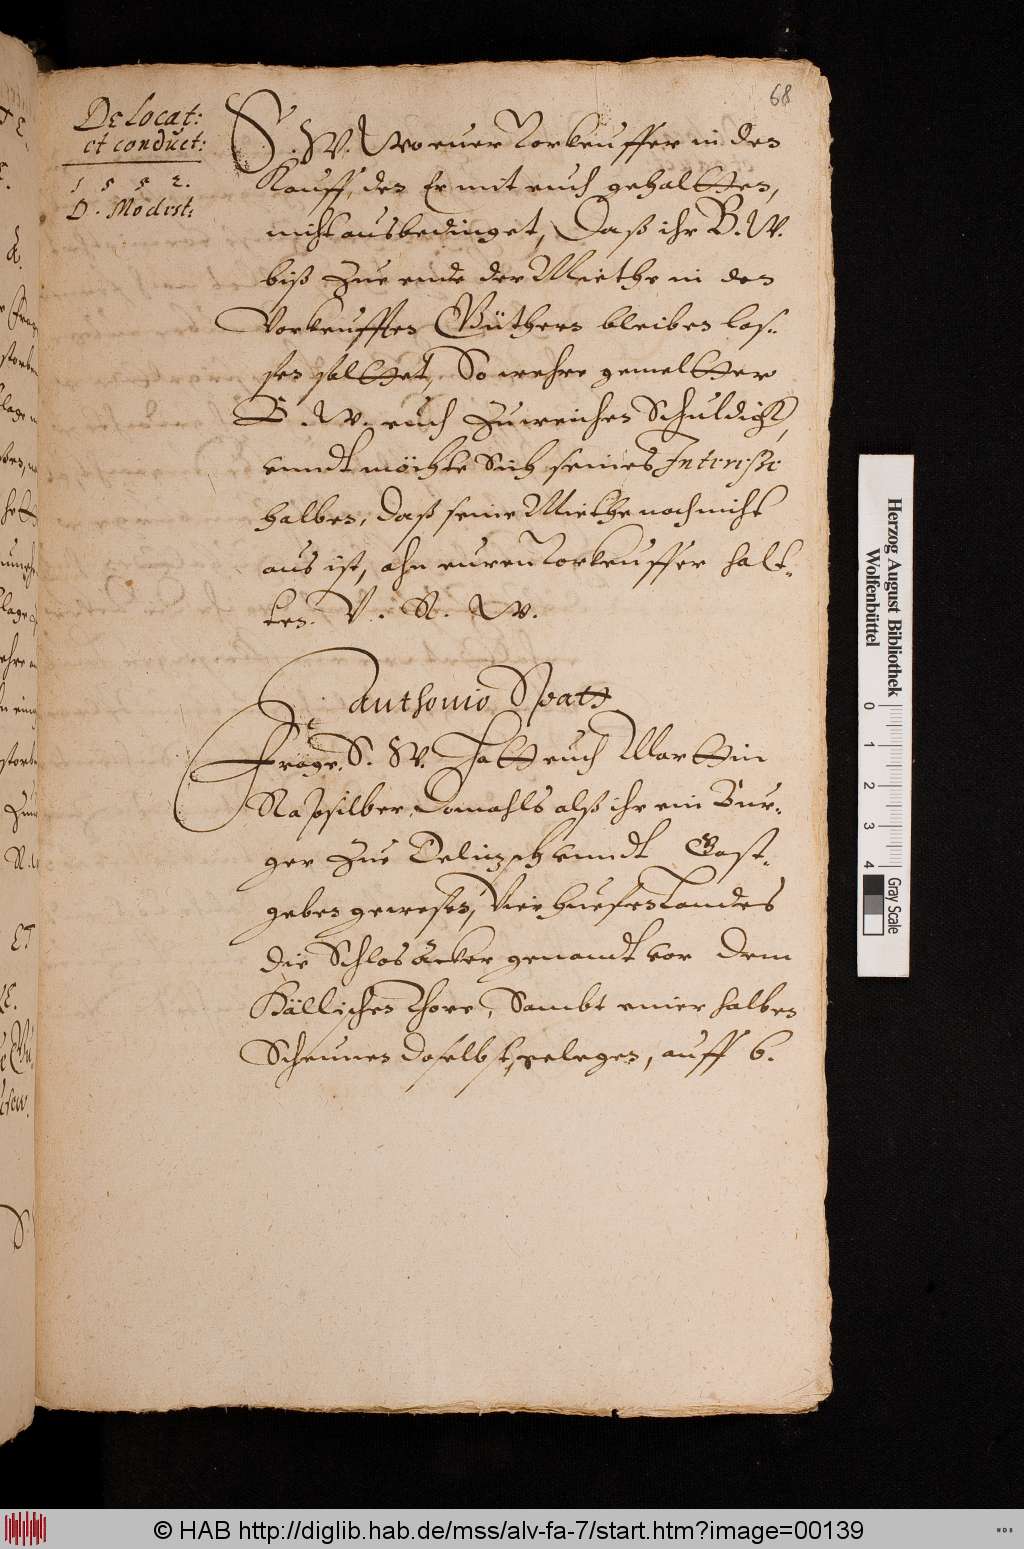 68
De locat:
et conduct:
1 5 5 2.
D. Modest:
S. W. Wo euer Vorkeuffer in den
Kauff, den Er mit euch gehaltten,
nicht ausbedinget, Daß ihr B. W.
biß zue ende der Miethe in den
Vorkeufften Güthern bleiben las-
sen soltet, So wehre gemeltter
B. W. euch zuweichen Schuldigk,
unndt möchte Sich seines Interesse
halben, daß seine Miethe noch nicht
aus ist, ahn euren Vorkeuffer halt-
ten. V. R. W.
Anthonio Spatz
Frage. S. W. Hatt euch Marttin
Raßsilber, Domahls alß ihr ein Bur-
ger zue Delitzsch unndt Gast-
geber gewesen, Vier huefen Landes
die Schlos äcker genandt vor dem
Hällischen Thore, Sambt einer halben
Scheunen daselbst gelegen, auff 6.
Herzog August Bibliothek
Wolfenbüttel
0 1 2 3 4
Gray Scale
© HAB http://diglib.hab.de/mss/alv-fa-7/start.htm?image=00139